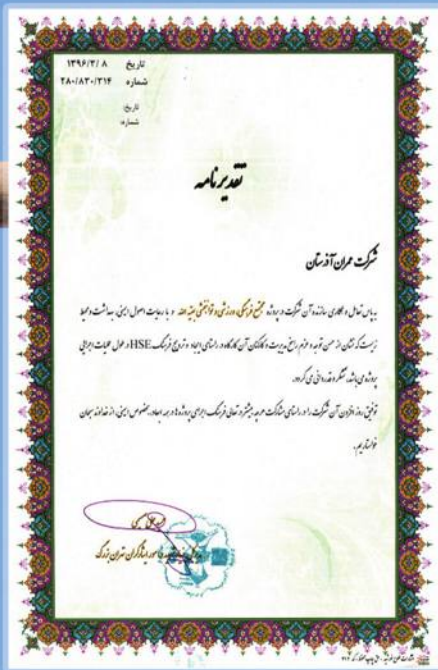 تاریخ ۱۳۹۶/۲/۸
شماره ۲۸۰/۸۳۰/۳۱۴
تاریخ:
شماره:
تقدیرنامه
شرکت عمران آذرستان
به پاس تعامل و همکاری سازنده آن شرکت در پروژه مجتمع فرهنگی، ورزشی و توانبخشی بقیه الله و با رعایت اصول ایمنی، بهداشت و محیط
زیست که نشان از حسن توجه و عزم راسخ مدیریت و کارکنان آن کارگاه در راستای ایجاد و ترویج فرهنگ HSE در طول عملیات اجرایی
پروژه می‌باشد، تشکر و قدردانی می گردد.
توفیق روز افزون آن شرکت را در راستای مشارکت هرچه بیشتر در تعالی فرهنگ اجرای پروژه ها در همه ابعاد، بخصوص ایمنی، از خداوند سبحان
خواستاریم.
امور ایثارگران تهران بزرگ